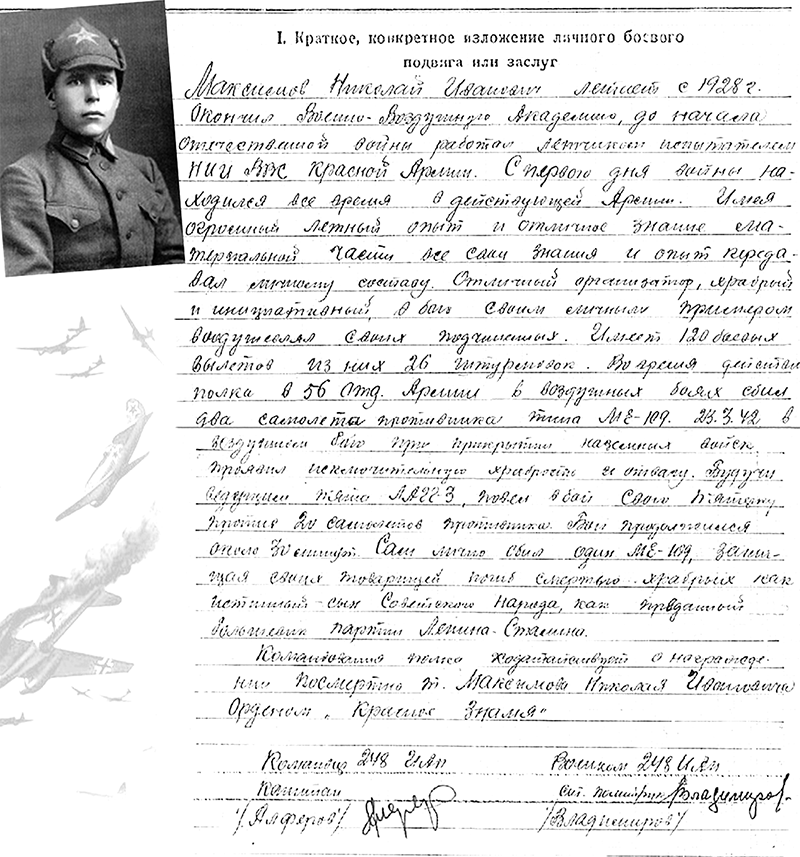 I. Краткое, конкретное изложение личного боевого
подвига или заслуг
Максимов Николай Иванович летает с 1928 г.
Окончил Военно-Воздушную Академию, до начала
отечественной войны работал летчиком испытателем
НИИ ВВС Красной Армии. С первого дня войны на-
ходился все время в действующей Армии. Имея
огромный летный опыт и отличное знание ма-
териальной части все свои знания и опыт переда-
вал личному составу. Отличный организатор, храбрый
и инициативный, в бою своим личным примером
воодушевлял своих подчиненных. Имеет 120 боевых
вылетов из них 26 штурмовок. Во время действий
полка в 56 Отд. Армии в воздушных боях сбил
два самолета противника типа МЕ-109. 23.3.42 в
воздушном бою при прикрытии наземных войск
проявил исключительную храбрость и отвагу. Будучи
ведущим пяти ЛАГГ-3, повел в бой свою пятерку
против 20 самолетов противника. Бой продолжился
около 30 минут. Сам лично сбил один МЕ-109, защи-
щая своих товарищей погиб смертью храбрых как
истинный сын Советского народа, как преданный
большевик партии Ленина-Сталина.
Командование полка ходатайствует о награжде-
нии посмертно т. Максимова Николая Ивановича
Орденом „Красное Знамя"
Командир 248 ИАП Военком 248 ИАП
Капитан ст. политрук Владимиров
/Алферов/ /Владимиров/